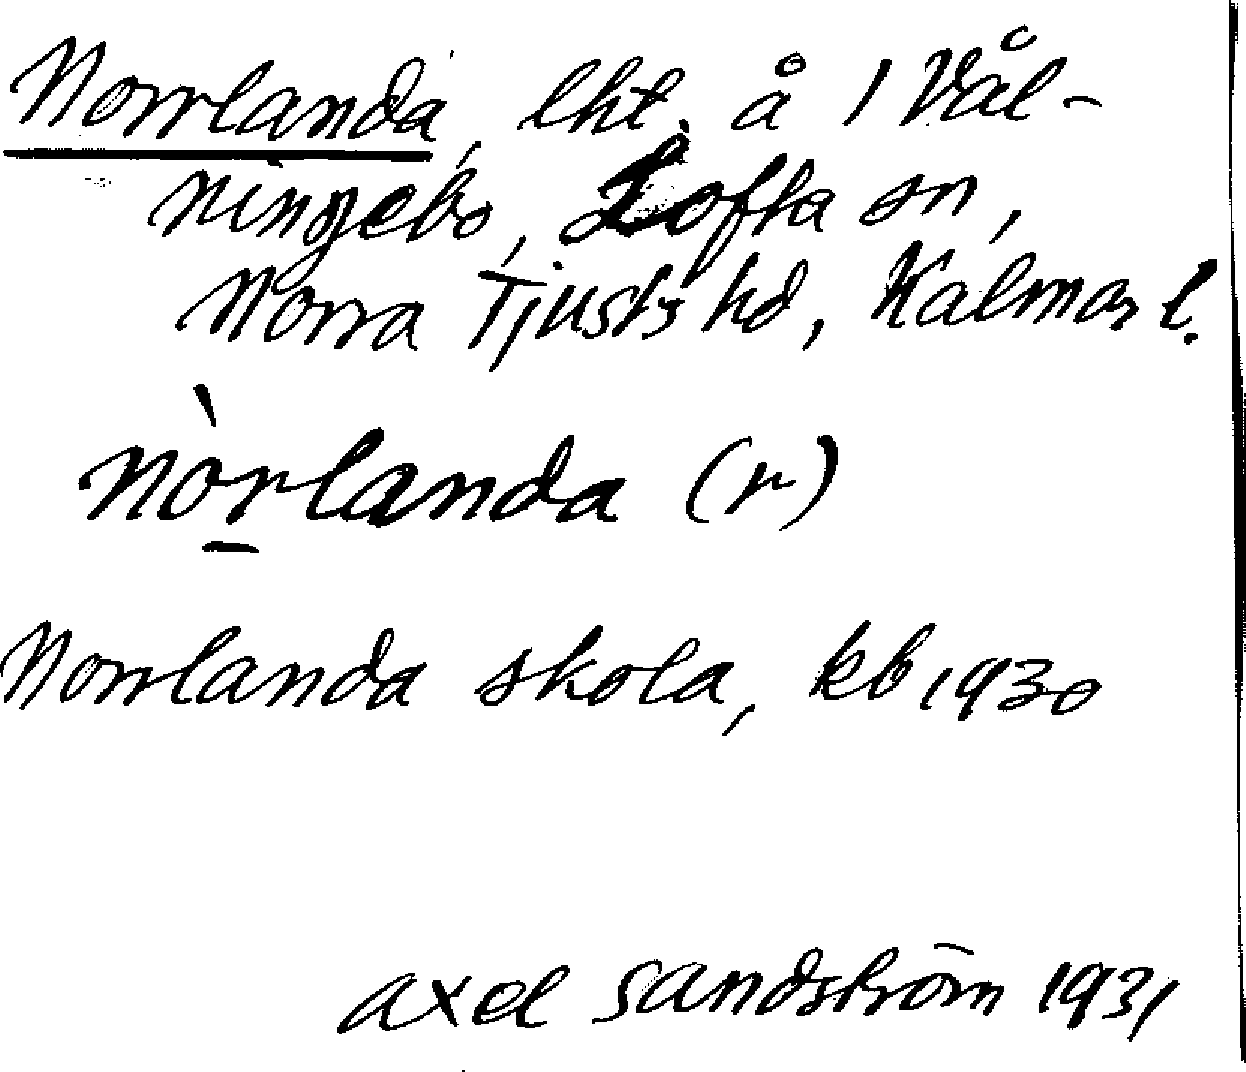 Norrlanda, lht. å 1 Vål-
ningebo, Lofta sn,
Norra Tjusts hd, Kalmar l.
nòrlanda (r)
Norrlanda skola, kb 1930
Axel Sandström 1931